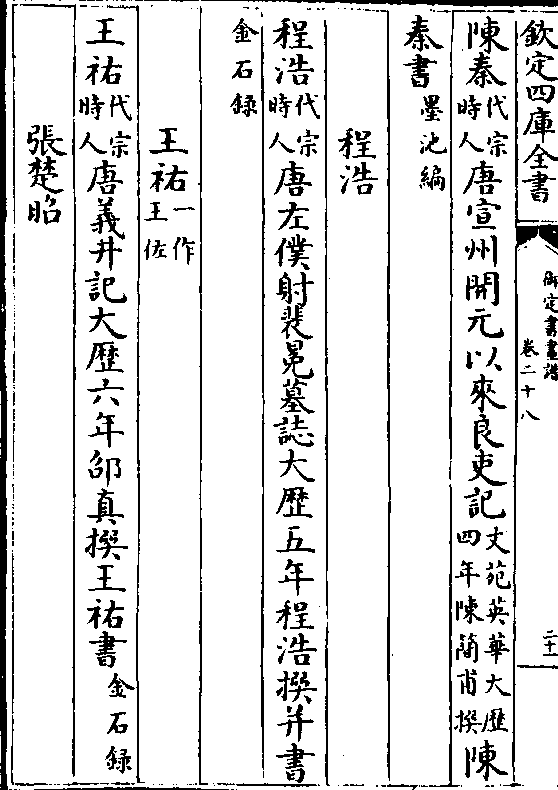 欽定四庫全書
御定書畫譜
卷二十八
二十
陳秦代宗時人唐宣州開元以來良吏記文苑英華大歴四年陳蕳甫撰陳
秦書墨池編
程浩
程浩代宗時人唐左僕射裴冕墓誌大歴五年程浩撰并書
金石録
王祐一作王佐
王祐代宗時人唐義井記大歴六年邵真撰王祐書金石録
張楚昭